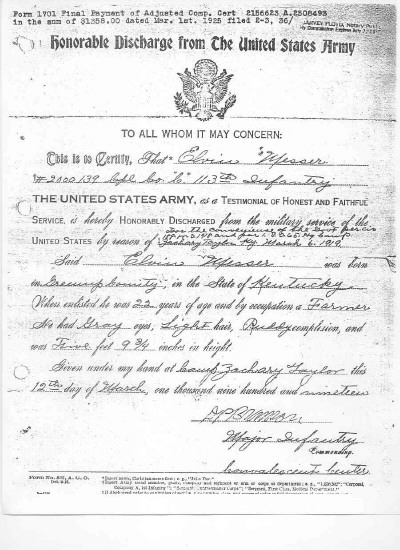 Form 1701 Final Payment of Adjusted Comp. Cert 2156623 A.2308493
in the sum of $1358.00 dated Mar. 1st. 1925 filed 2-3, 36/
Honorable Discharge from The United States Army
TO ALL WHOM IT MAY CONCERN:
This is to Certify, That* Elvin Messer
#2000139 Cpl Co "L" 113th Infantry
THE UNITED STATES ARMY, as a TESTIMONIAL OF HONEST AND FAITHFUL
SERVICE, is hereby HONORABLY DISCHARGED from the military service of the
For the convenience of the Govt per cir
UNITED STATES by reason of
Zachary Taylor Ky March 6. 1919.
Said Elvin Messer was born
in Greenup County, in the State of Kentucky
When enlisted he was 22 years of age and by occupation a Farmer
He had Gray eyes, Light hair, Ruddy complexion, and
was Five feet 9 3/4 inches in height.
Given under my hand at Camp Zachary Taylor this
12th day of March, one thousand nine hundred and nineteen
Major Infantry
Commanding.
Convalescent Center
Form No. 525, A. G. O.